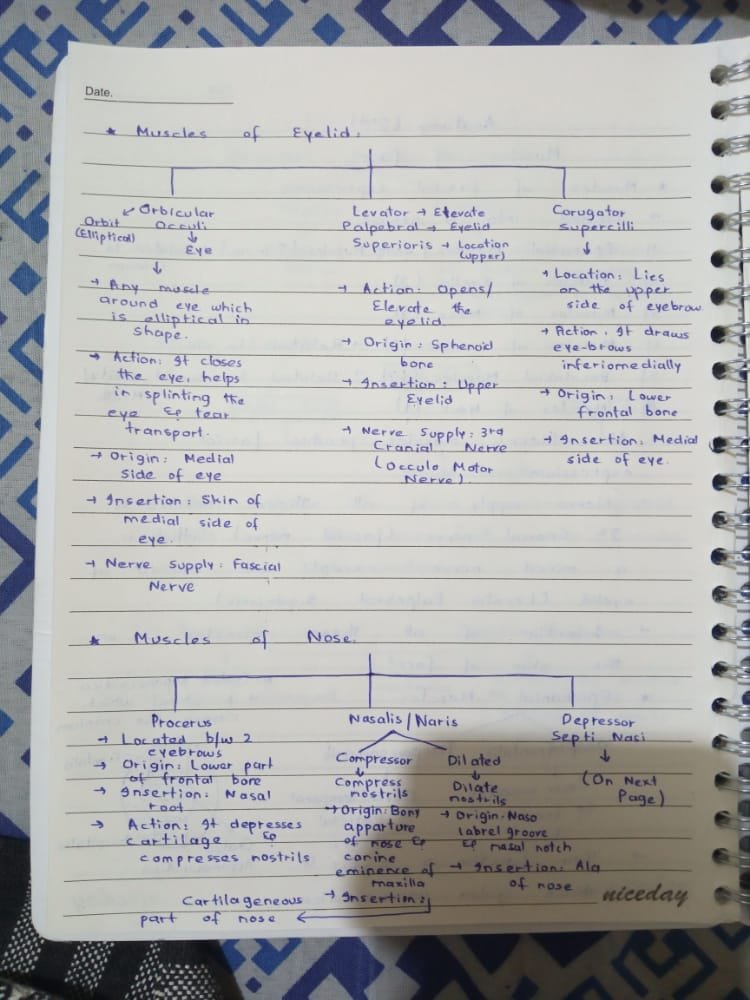 Date.
★ Muscles of Eyelid.
Orbicular
Occuli
Orbit
(Elliptical)
Eye
→ Any muscle
around eye which
is elliptical in
shape.
→ Action: It closes
the eye, helps
in splinting the
eye & tear
transport.
→ Origin: Medial
side of eye
→ Insertion: Skin of
medial side of
eye.
→ Nerve Supply: Fascial
Nerve
Levator → Elevate
Palpebral → Eyelid
Superioris → Location
(upper)
→ Action: Opens/
Elevate the
eyelid.
→ Origin: Sphenoid
bone
→ Insertion: Upper
Eyelid
→ Nerve Supply: 3rd
Cranial Nerve
(Occulo Motor
Nerve).
Corugator
supercilli
→ Location: Lies
on the upper
side of eyebrow
→ Action: It draws
eye-brows
inferiomedially
→ Origin: Lower
frontal bone
→ Insertion: Medial
side of eye.
★ Muscles of Nose.
Procerus
→ Located b/w 2
eyebrows
→ Origin: Lower part
of frontal bone
→ Insertion: Nasal
root
→ Action: It depresses
cartilage &
compresses nostrils
Nasalis/Naris
Compressor
Compress
nostrils
→ Origin: Bony
apparture
of nose &
canine
eminence of
maxilla
→ Insertion:
Cartilageneous
part of nose
Dilated
Dilate
nostrils
→ Origin: Naso
labrel groove
& nasal notch
→ Insertion: Ala
of nose
Depressor
Septi Nasi
(On Next
Page)
niceday